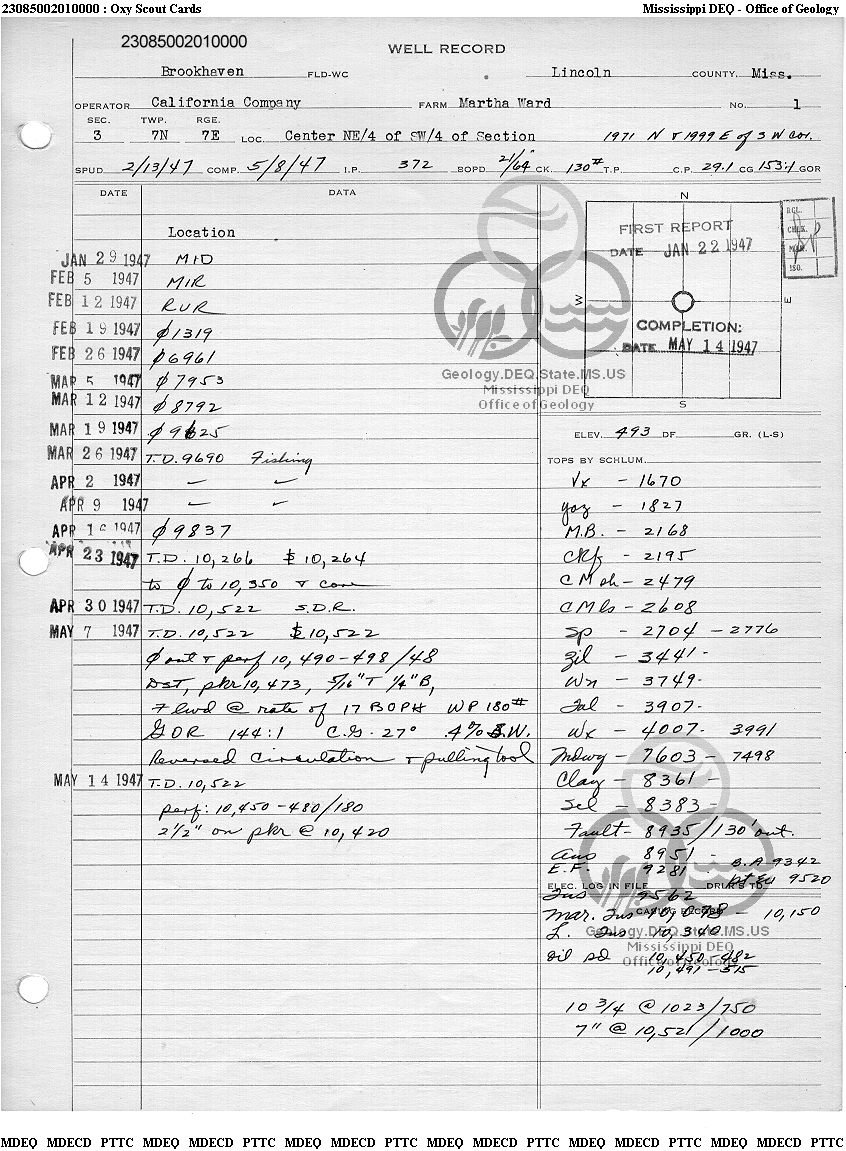 23085002010000 : Oxy Scout Cards Mississippi DEQ - Office of Geology
23085002010000
WELL RECORD
Brookhaven FLD-WC Lincoln COUNTY, Miss.
OPERATOR California Company FARM Martha Ward NO. 1
SEC. TWP. RGE.
3 7N 7E LOC. Center NE/4 of SW/4 of Section 1971 N & 1999 E of SW Cor.
SPUD 2/13/47 COMP. 5/8/47 I.P. 372 BOPD 21/64" CK. 130# T.P. C.P. 29.1 CG 153:1 GOR
DATE DATA
Location
JAN 29 1947 MID
FEB 5 1947 MIR
FEB 12 1947 RUR
FEB 19 1947 ϕ1319
FEB 26 1947 ϕ6961
MAR 5 1947 ϕ7953
MAR 12 1947 ϕ8792
MAR 19 1947 ϕ9625
MAR 26 1947 T.D. 9690 Fishing
APR 2 1947 — —
APR 9 1947 — —
APR 16 1947 ϕ9837
APR 23 1947 T.D. 10,266 $ 10,264
to ϕ to 10,350 & core
APR 30 1947 T.D. 10,522 S.D.R.
MAY 7 1947 T.D. 10,522 $ 10,522
ϕ out & perf 10,490-498/48
DST, pkr 10,473, 5/16" T 1/4" B,
Flwd @ rate of 17 BOPH WP 180#
GOR 144:1 C.G. 27° .4% S.W.
Reversed circulation & pulling tool
MAY 14 1947 T.D. 10,522
perf: 10,450-480/180
2½" on pkr @ 10,420
N
FIRST REPORT
DATE JAN 22 1947
RCL.
CHEK.
ISO.
W E
COMPLETION:
DATE MAY 14 1947
S
Geology.DEQ.State.MS.US
Mississippi DEQ
Office of Geology
ELEV. 493 DF GR. (L-S)
TOPS BY SCHLUM.
Vx - 1670
yaz - 1827
M.B. - 2168
Ckf - 2195
CM sh - 2479
CM ls - 2608
Sp - 2704 - 2776
Zil - 3441 -
Wn - 3749 -
Tal - 3907 -
Wx - 4007 - 3991
Mdwy - 7603 - 7498
Clay - 8361 -
Sel - 8383 -
Fault - 8935/130' out.
Aus 8951 -
E.F. 9281 - B.A 9342
ELEC. LOG IN FILE DRLR'S TD 9520
Tus 9562
Mar. Tus 10,078 - 10,150
CASING RECORD
L. Tus 10,340
Geology.DEQ.State.MS.US
Mississippi DEQ
Office of Geology
oil sd 10,450-482
10,491-515
10 3/4 @ 1023/750
7" @ 10,521/1000
MDEQ MDECD PTTC MDEQ MDECD PTTC MDEQ MDECD PTTC MDEQ MDECD PTTC MDEQ MDECD PTTC MDEQ MDECD PTTC